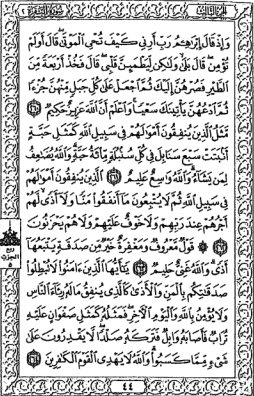 الجزء الثالث سورة البقرة ٢
وَإِذْ قَالَ إِبْرَٰهِـۧمُ رَبِّ أَرِنِى كَيْفَ تُحْىِ ٱلْمَوْتَىٰ قَالَ أَوَلَمْ
تُؤْمِن قَالَ بَلَىٰ وَلَـٰكِن لِّيَطْمَئِنَّ قَلْبِى قَالَ فَخُذْ أَرْبَعَةً مِّنَ
ٱلطَّيْرِ فَصُرْهُنَّ إِلَيْكَ ثُمَّ ٱجْعَلْ عَلَىٰ كُلِّ جَبَلٍ مِّنْهُنَّ جُزْءًا
ثُمَّ ٱدْعُهُنَّ يَأْتِينَكَ سَعْيًا وَٱعْلَمْ أَنَّ ٱللَّهَ عَزِيزٌ حَكِيمٌ ٢٦٠
مَّثَلُ ٱلَّذِينَ يُنفِقُونَ أَمْوَٰلَهُمْ فِى سَبِيلِ ٱللَّهِ كَمَثَلِ حَبَّةٍ
أَنۢبَتَتْ سَبْعَ سَنَابِلَ فِى كُلِّ سُنۢبُلَةٍ مِّا۟ئَةُ حَبَّةٍ وَٱللَّهُ يُضَـٰعِفُ
لِمَن يَشَآءُ وَٱللَّهُ وَٰسِعٌ عَلِيمٌ ٢٦١ ٱلَّذِينَ يُنفِقُونَ أَمْوَٰلَهُمْ
فِى سَبِيلِ ٱللَّهِ ثُمَّ لَا يُتْبِعُونَ مَآ أَنفَقُوا۟ مَنًّا وَلَآ أَذًى لَّهُمْ
أَجْرُهُمْ عِندَ رَبِّهِمْ وَلَا خَوْفٌ عَلَيْهِمْ وَلَا هُمْ يَحْزَنُونَ
٢٦٢ ۞ قَوْلٌ مَّعْرُوفٌ وَمَغْفِرَةٌ خَيْرٌ مِّن صَدَقَةٍ يَتْبَعُهَآ
أَذًى وَٱللَّهُ غَنِىٌّ حَلِيمٌ ٢٦٣ يَـٰٓأَيُّهَا ٱلَّذِينَ ءَامَنُوا۟ لَا تُبْطِلُوا۟
صَدَقَـٰتِكُم بِٱلْمَنِّ وَٱلْأَذَىٰ كَٱلَّذِى يُنفِقُ مَالَهُۥ رِئَآءَ ٱلنَّاسِ
وَلَا يُؤْمِنُ بِٱللَّهِ وَٱلْيَوْمِ ٱلْـَٔاخِرِ فَمَثَلُهُۥ كَمَثَلِ صَفْوَانٍ عَلَيْهِ
تُرَابٌ فَأَصَابَهُۥ وَابِلٌ فَتَرَكَهُۥ صَلْدًا لَّا يَقْدِرُونَ عَلَىٰ
شَىْءٍ مِّمَّا كَسَبُوا۟ وَٱللَّهُ لَا يَهْدِى ٱلْقَوْمَ ٱلْكَـٰفِرِينَ ٢٦٤
ربع
الحزب
٥
٤٤